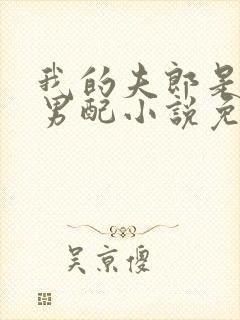 我的夫郎是
男配小说免
吴京傻